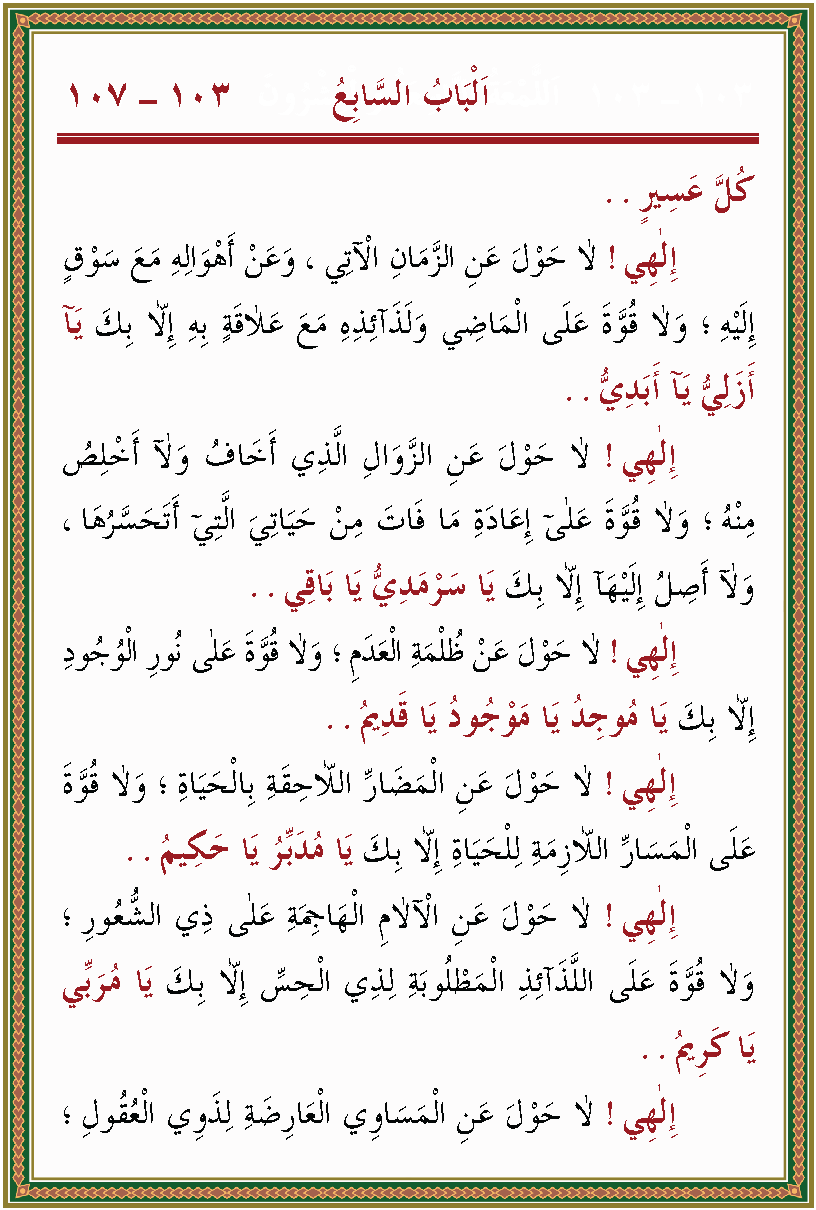 اَلْبَابُ السَّابِعُ ١٠٣ – ١٠٧
كُلَّ عَسِيرٍ . .
إِلٰهِي ! لَا حَوْلَ عَنِ الزَّمَانِ الْآتِي ، وَعَنْ أَهْوَالِهِ مَعَ سَوْقٍ
إِلَيْهِ ؛ وَلَا قُوَّةَ عَلَى الْمَاضِي وَلَذَآئِذِهِ مَعَ عَلَاقَةٍ بِهِ إِلَّا بِكَ يَآ
أَزَلِيُّ يَآ أَبَدِيُّ . .
إِلٰهِي ! لَا حَوْلَ عَنِ الزَّوَالِ الَّذِي أَخَافُ وَلَآ أَخْلِصُ
مِنْهُ ؛ وَلَا قُوَّةَ عَلٰٓى إِعَادَةِ مَا فَاتَ مِنْ حَيَاتِيَ الَّتِيٓ أَتَحَسَّرُهَا ،
وَلَآ أَصِلُ إِلَيْهَآ إِلَّا بِكَ يَا سَرْمَدِيُّ يَا بَاقِي . .
إِلٰهِي ! لَا حَوْلَ عَنْ ظُلْمَةِ الْعَدَمِ ؛ وَلَا قُوَّةَ عَلٰى نُورِ الْوُجُودِ
إِلَّا بِكَ يَا مُوجِدُ يَا مَوْجُودُ يَا قَدِيمُ . .
إِلٰهِي ! لَا حَوْلَ عَنِ الْمَضَارِّ اللَّاحِقَةِ بِالْحَيَاةِ ؛ وَلَا قُوَّةَ
عَلَى الْمَسَارِّ اللَّازِمَةِ لِلْحَيَاةِ إِلَّا بِكَ يَا مُدَبِّرُ يَا حَكِيمُ . .
إِلٰهِي ! لَا حَوْلَ عَنِ الْآلَامِ الْهَاجِمَةِ عَلٰى ذِي الشُّعُورِ ؛
وَلَا قُوَّةَ عَلَى اللَّذَآئِذِ الْمَطْلُوبَةِ لِذِي الْحِسِّ إِلَّا بِكَ يَا مُرَبِّي
يَا كَرِيمُ . .
إِلٰهِي ! لَا حَوْلَ عَنِ الْمَسَاوِي الْعَارِضَةِ لِذَوِي الْعُقُولِ ؛